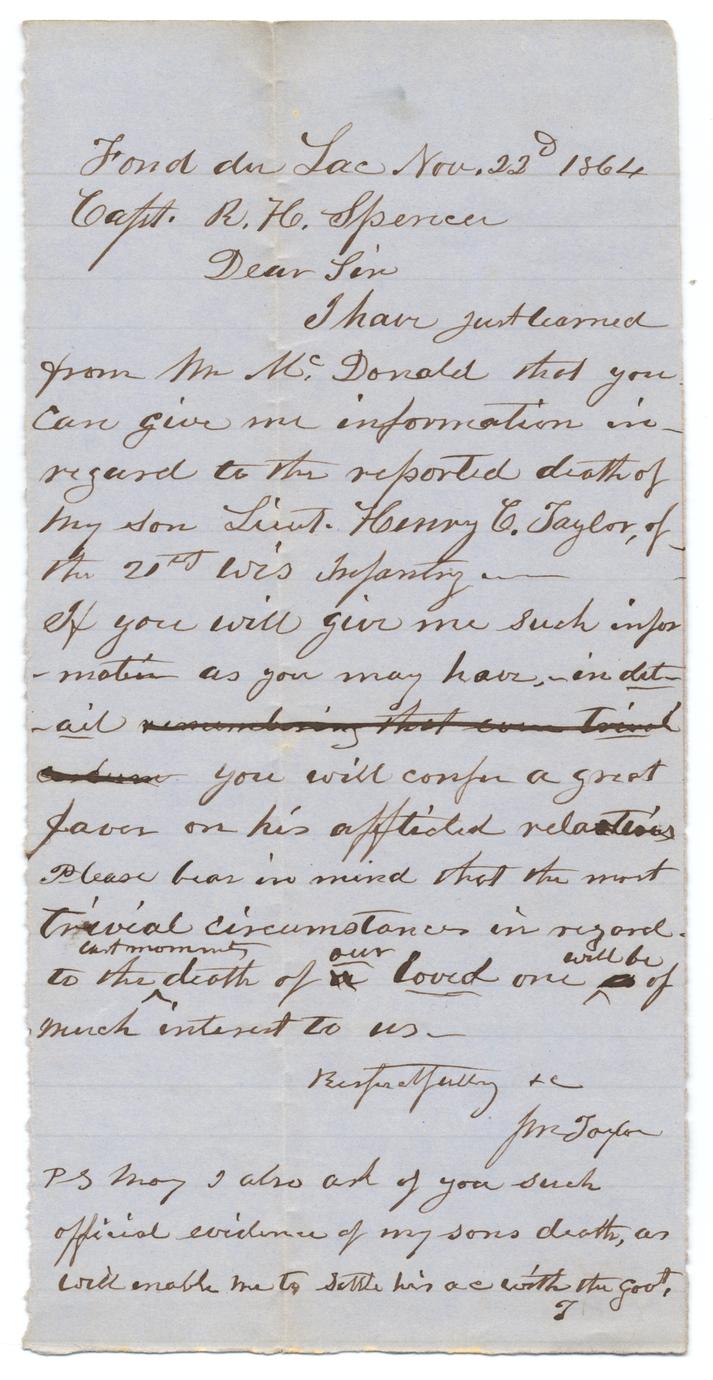 Fond du Lac Nov. 22d 1864
Capt. R. H. Spencer
Dear Sir
I have just learned
from Mr Mc Donald that you
can give me information in-
regard to the reported death of
my son Lieut. Henry C. Taylor, of
the 21st Wis Infantry
If you will give me such infor
-mation as you may have, - in det-
-ail remembering that even trivial
you will confer a great
favor on his afflicted relatives
Please bear in mind that the most
trivial circumstances in regard
last moments our will be
to the death of a loved one of
much interest to us -
Respectfully &c
Taylor
PS May I also ask of you such
official evidence of my sons death, as
will enable me to settle his ac with the govt.
T